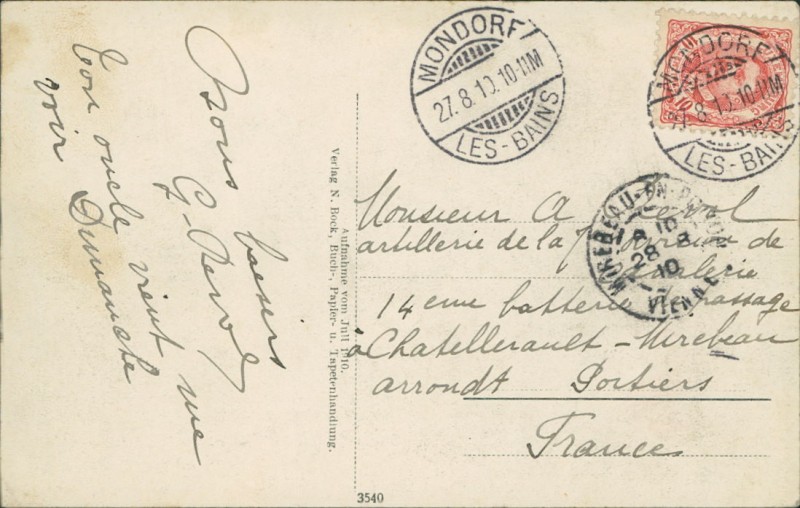 Bons baisers
G. Derol
Ton oncle vient me
voir Dimanche
MONDORF
27.8.10.10-11M
LES-BAINS
MONDORF
8.10.10-11M
LES-BAINS
10
MIREBEAU-
28 8
10
VIENNE
Monsieur A
artillerie de la 7
de
14eme batterie de passage
à Chatellerault-Mirebeau
arrondt Poitiers
France
Aufnahme vom Juli 1910.
Verlag N. Bock, Buch-, Papier- u. Tapetenhandlung.
3540